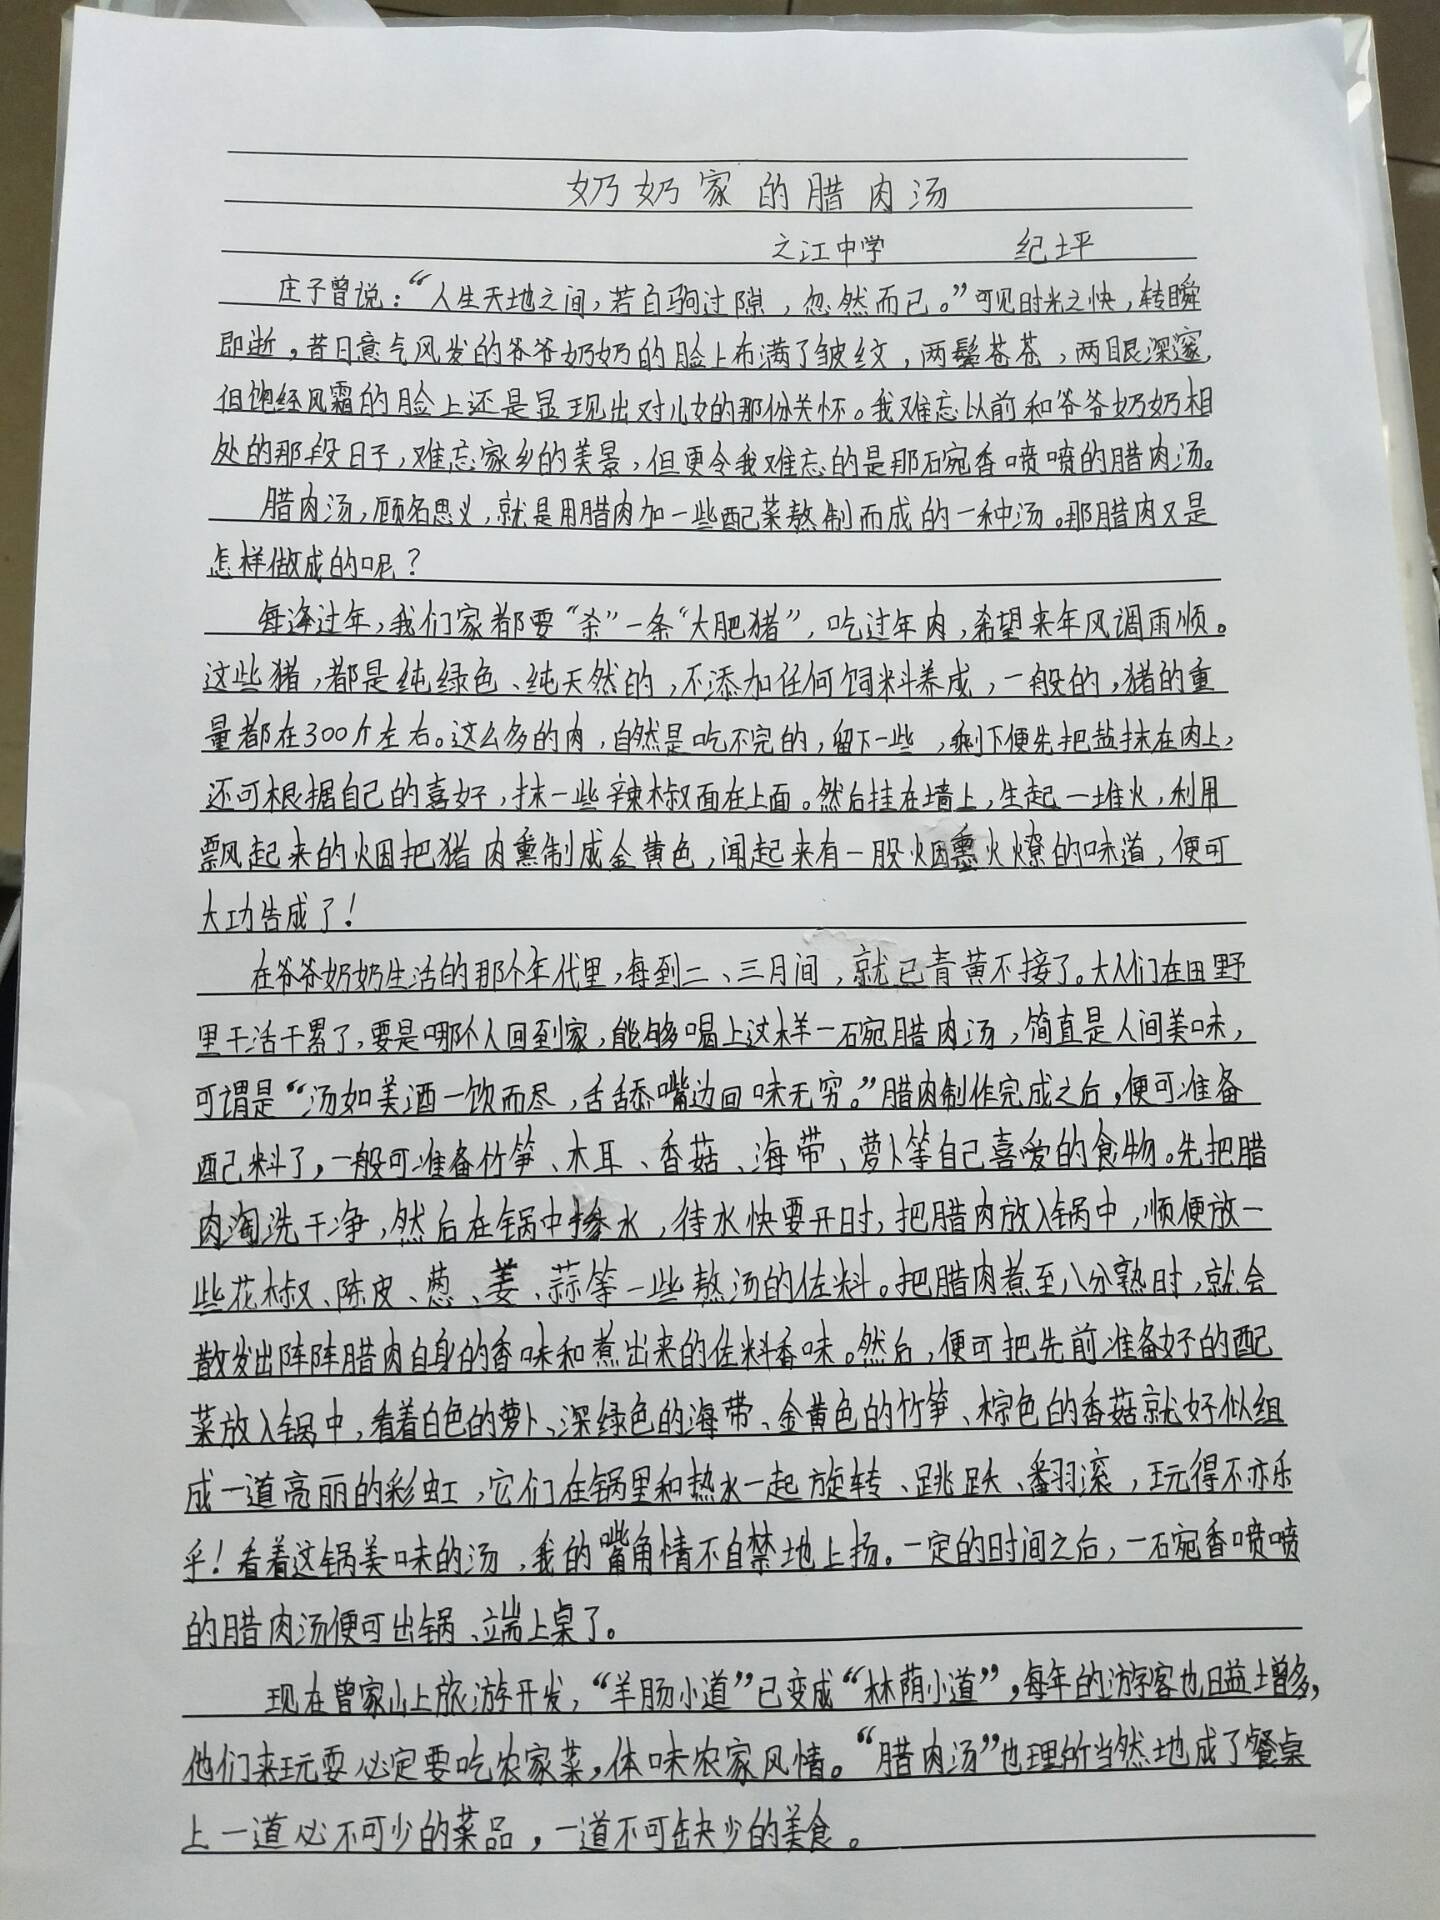 奶奶家的腊肉汤
之江中学 纪坪
庄子曾说：“人生天地之间，若白驹过隙，忽然而已。”可见时光之快，转瞬
即逝，昔日意气风发的爷爷奶奶的脸上布满了皱纹，两鬓苍苍，两眼深邃，
但饱经风霜的脸上还是显现出对儿女的那份关怀。我难忘以前和爷爷奶奶相
处的那段日子，难忘家乡的美景，但更令我难忘的是那碗香喷喷的腊肉汤。
腊肉汤，顾名思义，就是用腊肉加一些配菜熬制而成的一种汤。那腊肉又是
怎样做成的呢？
每逢过年，我们家都要“杀”一条“大肥猪”，吃过年肉，希望来年风调雨顺。
这些猪，都是纯绿色、纯天然的，不添加任何饲料养成，一般的，猪的重
量都在300斤左右。这么多的肉，自然是吃不完的，留下一些，剩下便先把盐抹在肉上，
还可根据自己的喜好，抹一些辣椒面在上面。然后挂在墙上，生起一堆火，利用
飘起来的烟把猪肉熏制成金黄色，闻起来有一股烟熏火燎的味道，便可
大功告成了！
在爷爷奶奶生活的那个年代里，每到二、三月间，就已青黄不接了。大人们在田野
里干活干累了，要是哪个人回到家，能够喝上这样一碗腊肉汤，简直是人间美味，
可谓是“汤如美酒一饮而尽，舌舔嘴边回味无穷。”腊肉制作完成之后，便可准备
配料了，一般可准备竹笋、木耳、香菇、海带、萝卜等自己喜爱的食物。先把腊
肉淘洗干净，然后在锅中掺水，待水快要开时，把腊肉放入锅中，顺便放一
些花椒、陈皮、葱、姜、蒜等一些熬汤的佐料。把腊肉煮至八分熟时，就会
散发出阵阵腊肉自身的香味和煮出来的佐料香味。然后，便可把先前准备好的配
菜放入锅中，看着白色的萝卜、深绿色的海带、金黄色的竹笋、棕色的香菇就好似组
成一道亮丽的彩虹，它们在锅里和热水一起旋转、跳跃、翻滚，玩得不亦乐
乎！看着这锅美味的汤，我的嘴角情不自禁地上扬。一定的时间之后，一碗香喷喷
的腊肉汤便可出锅、端上桌了。
现在曾家山上旅游开发，“羊肠小道”已变成“林荫小道”，每年的游客也日益增多，
他们来玩耍必定要吃农家菜，体味农家风情。“腊肉汤”也理所当然地成了餐桌
上一道必不可少的菜品，一道不可缺少的美食。